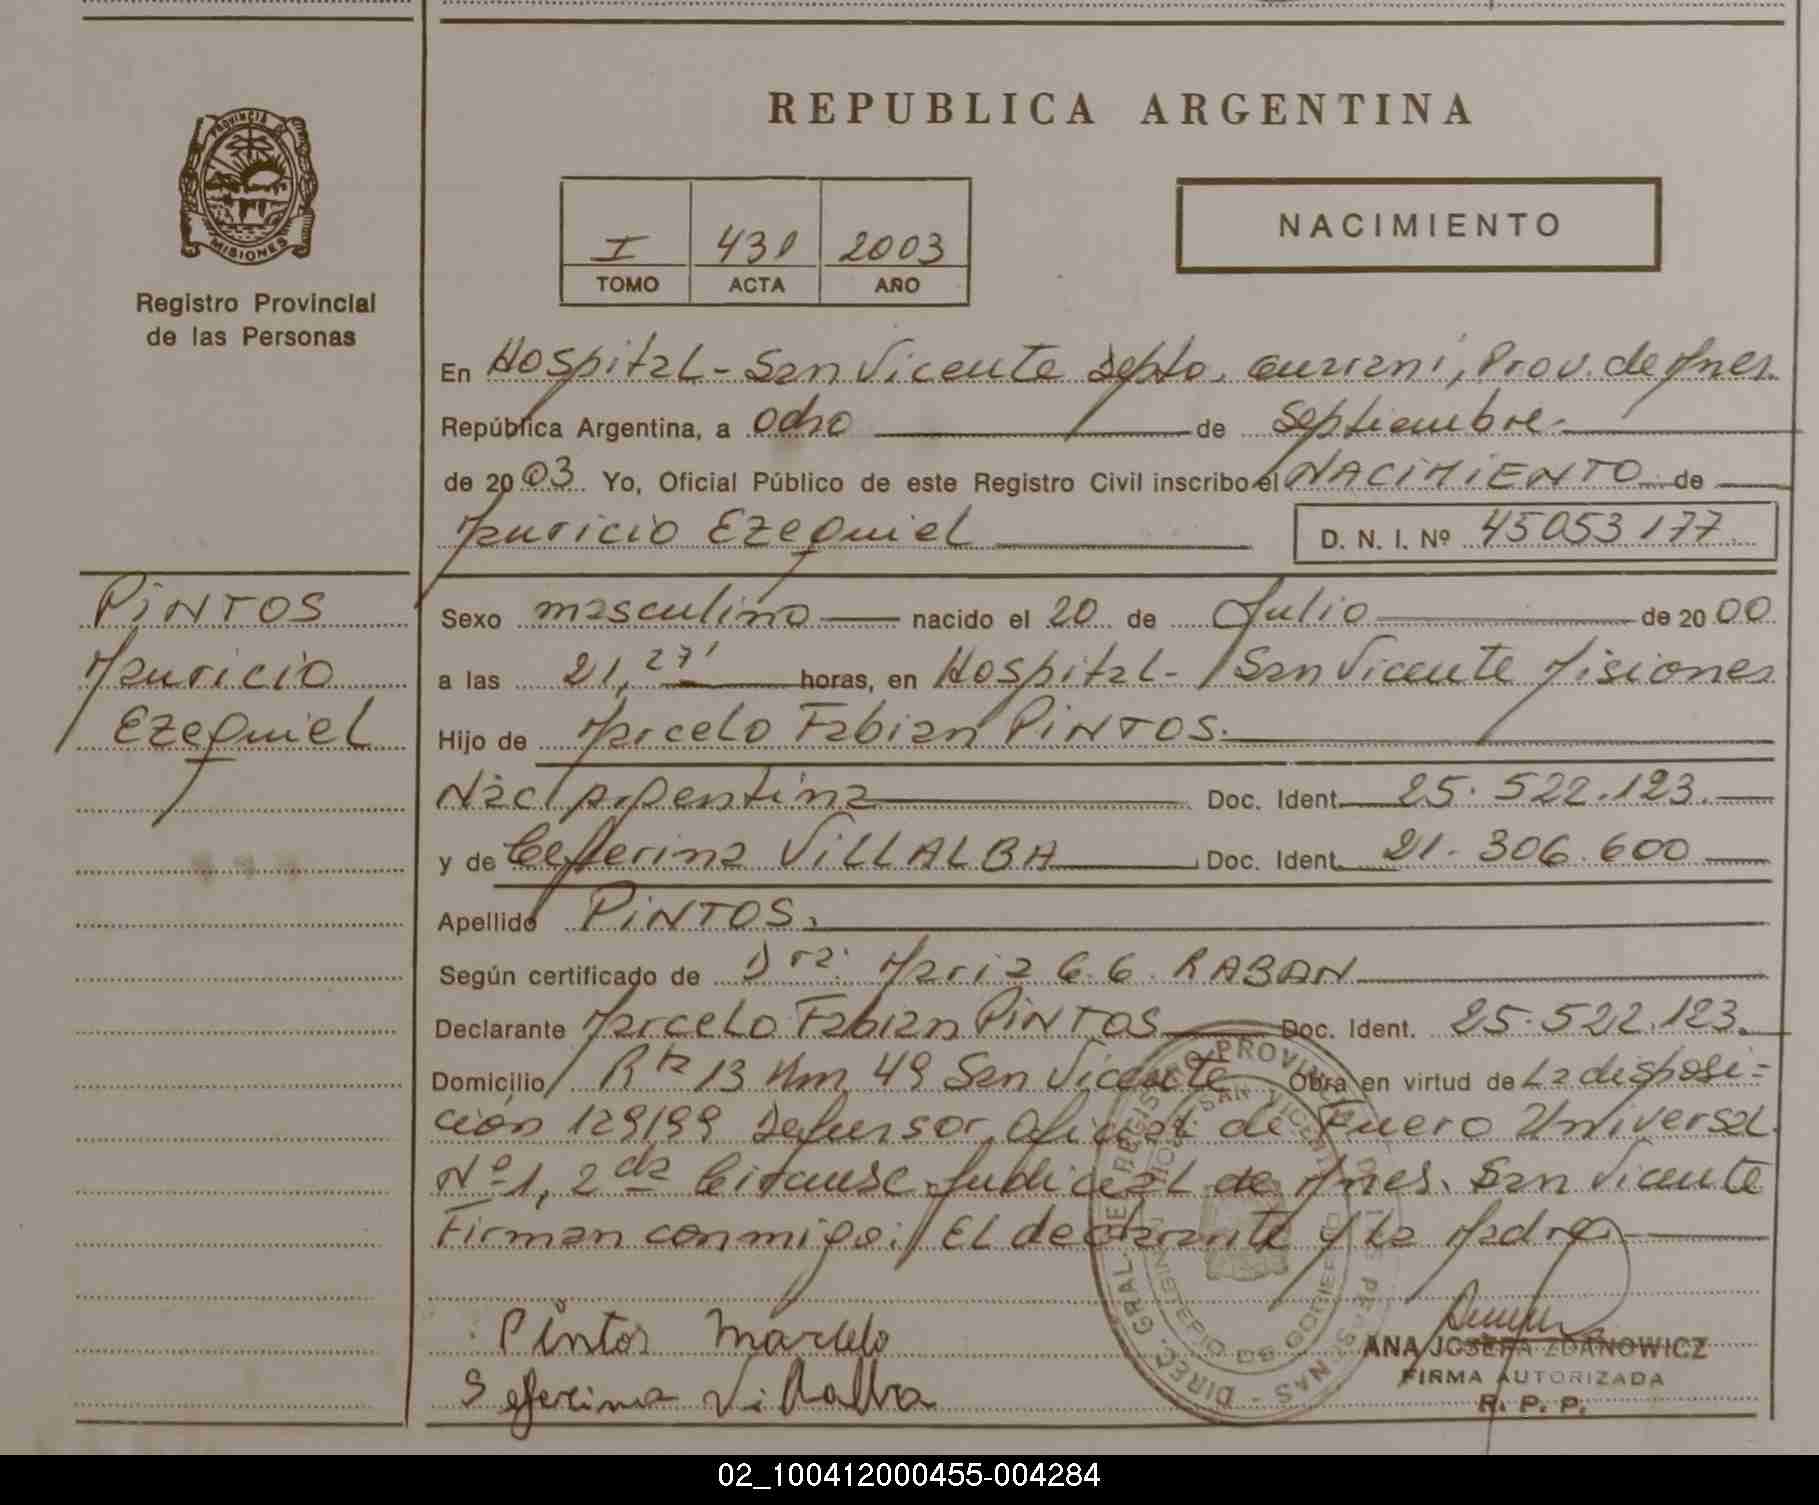 PROVINCIA DE
MISIONES
Registro Provincial
de las Personas
REPUBLICA ARGENTINA
I 431 2003
TOMO ACTA AÑO
NACIMIENTO
En Hospital - San Vicente Depto. Guarani, Prov. de Mnes.
República Argentina, a Ocho de Septiembre.
de 2003. Yo, Oficial Público de este Registro Civil inscribo el NACIMIENTO de
Mauricio Ezequiel
D. N. I. Nº 45053177
PiNTOS
Mauricio
Ezequiel
Sexo masculino nacido el 20 de Julio de 2000
a las 21,27' horas, en Hospital - San Vicente Misiones
Hijo de Marcelo Fabian PiNTOS.
Nac. Argentina Doc. Ident. 25.522.123.
y de Ceferina ViLLALBA Doc. Ident. 21.306.600
Apellido PiNTOS.
Según certificado de Dra. Maria G.G. RABAN
Declarante Marcelo Fabian PiNTOS Doc. Ident. 25.522.123.
Domicilio Rta 13 Km 49 San Vicente Obra en virtud de La disposi-
ción 129/99 Defensor Oficial de Fuero Universal
Nº 1, 2da Circunsc. Judicial de Mnes. San Vicente
Firman conmigo: El declarante y La Madre
Pintos Marcelo
Seferina Villalva
DIREC. GRAL. DE REGISTRO PROVINCIAL DE LAS PERSONAS
SAN VICENTE
MINISTERIO DE GOBIERNO
ANA JOSEFA ZDANOWICZ
FIRMA AUTORIZADA
R. P. P.
02_100412000455-004284